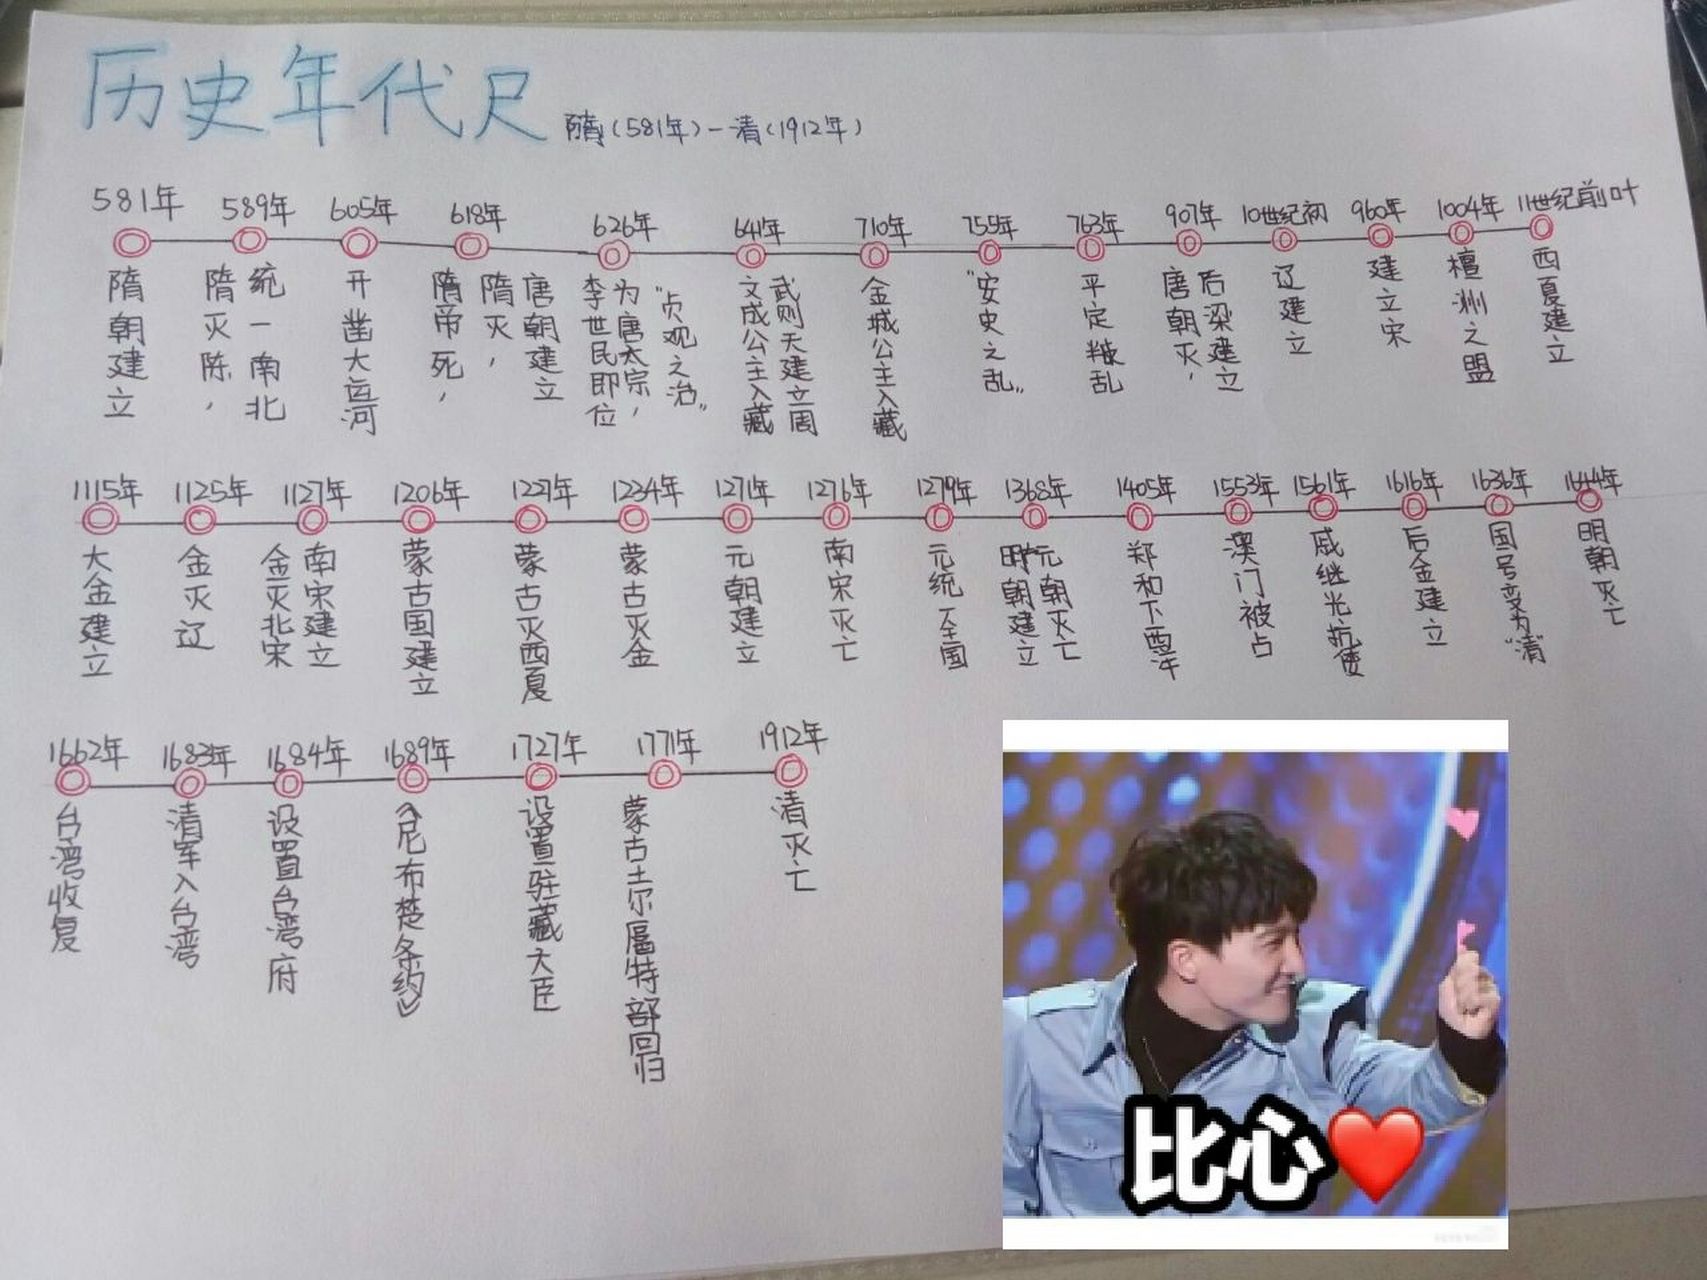 历史年代尺 隋(581年)—清(1912年)
581年 589年 605年 618年 626年 641年 710年 755年 763年 907年 10世纪初 960年 1004年 11世纪前叶
隋朝建立
隋灭陈,统一南北
开凿大运河
隋帝死,隋灭,唐朝建立
李世民即位为唐太宗,“贞观之治”
文成公主入藏
武则天建立周
金城公主入藏
“安史之乱”
平定叛乱
唐朝灭,后梁建立
辽建立
建立宋
檀洲之盟
西夏建立
1115年 1125年 1127年 1206年 1227年 1234年 1271年 1276年 1279年 1368年 1405年 1553年 1561年 1616年 1636年 1644年
大金建立
金灭辽
金灭北宋
南宋建立
蒙古国建立
蒙古灭西夏
蒙古灭金
元朝建立
南宋灭亡
元统一全国
明朝建立
元朝灭亡
郑和下西洋
澳门被占
戚继光抗倭
后金建立
国号变为“清”
明朝灭亡
1662年 1683年 1684年 1689年 1727年 1771年 1912年
台湾收复
清军入台湾
设置台湾府
《尼布楚条约》
设置驻藏大臣
蒙古土尔扈特部回归
清灭亡
比心❤